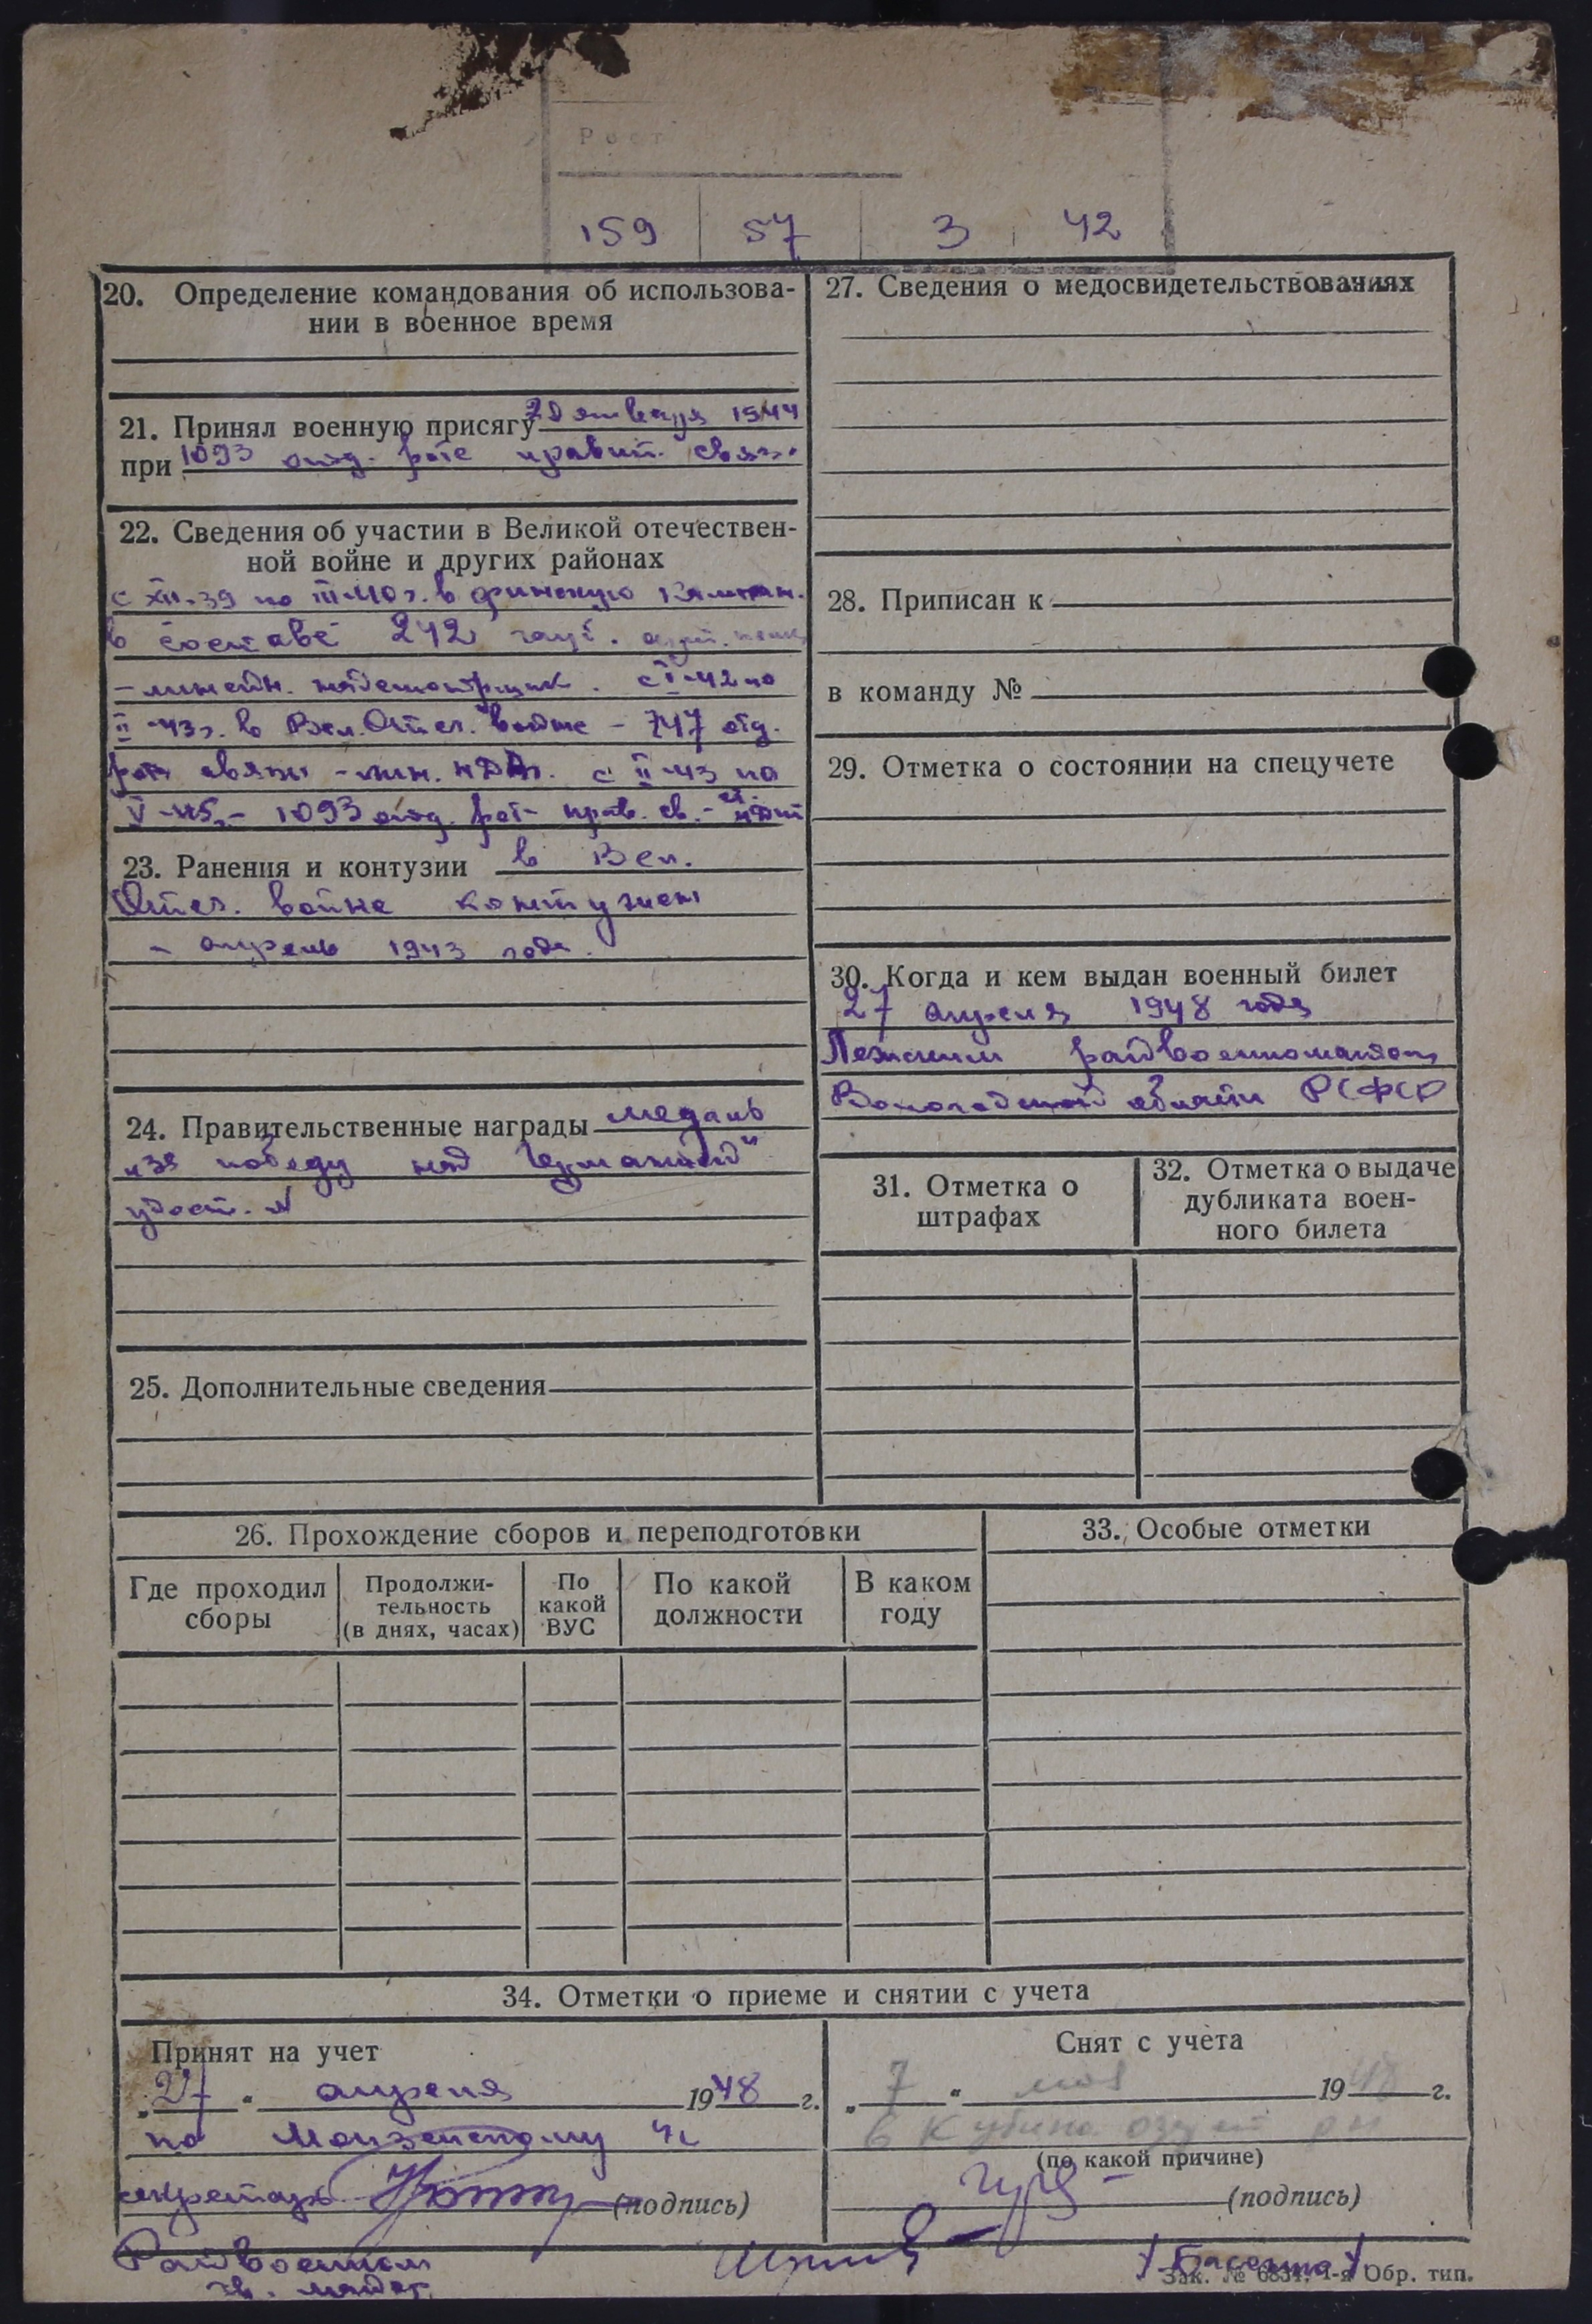 Рост
159 57 3 42
20. Определение командования об использова-
нии в военное время
21. Принял военную присягу 20 января 1944
при 1093 отд. роте правит. связи
22. Сведения об участии в Великой отечествен-
ной войне и других районах
с XII-39 по III-40 г. в финскую кампан.
в составе 242 гауб. арт. полка
- линейн. надсмотрщик. с I-42 по
II-43 г. в Вел. Отеч. войне - 747 отд.
рота связи - лин. с II-43 по
V-45 г. - 1093 отд. рот- прав. св. - ст.
23. Ранения и контузии в Вел.
Отеч. войне контужен
- апрель 1943 года.
24. Правительственные награды медаль
"За победу над Германией"
удост. №
25. Дополнительные сведения
27. Сведения о медосвидетельствованиях
28. Приписан к
в команду №
29. Отметка о состоянии на спецучете
30. Когда и кем выдан военный билет
27 апреля 1948 года
Лежским райвоенкоматом
Вологодской области РСФСР
31. Отметка о
штрафах
32. Отметка о выдаче
дубликата воен-
ного билета
26. Прохождение сборов и переподготовки
Где проходил
сборы
Продолжи-
тельность
(в днях, часах)
По
какой
ВУС
По какой
должности
В каком
году
33. Особые отметки
34. Отметки о приеме и снятии с учета
Принят на учет
"27" апреля 1948 г.
по Монзенскому
секретарь (подпись)
Снят с учета
"7" мая 1948 г.
в Кубино озерск рн
(по какой причине)
(подпись)
Райвоенком
Зак. № 6834. 1-я Обр. тип.